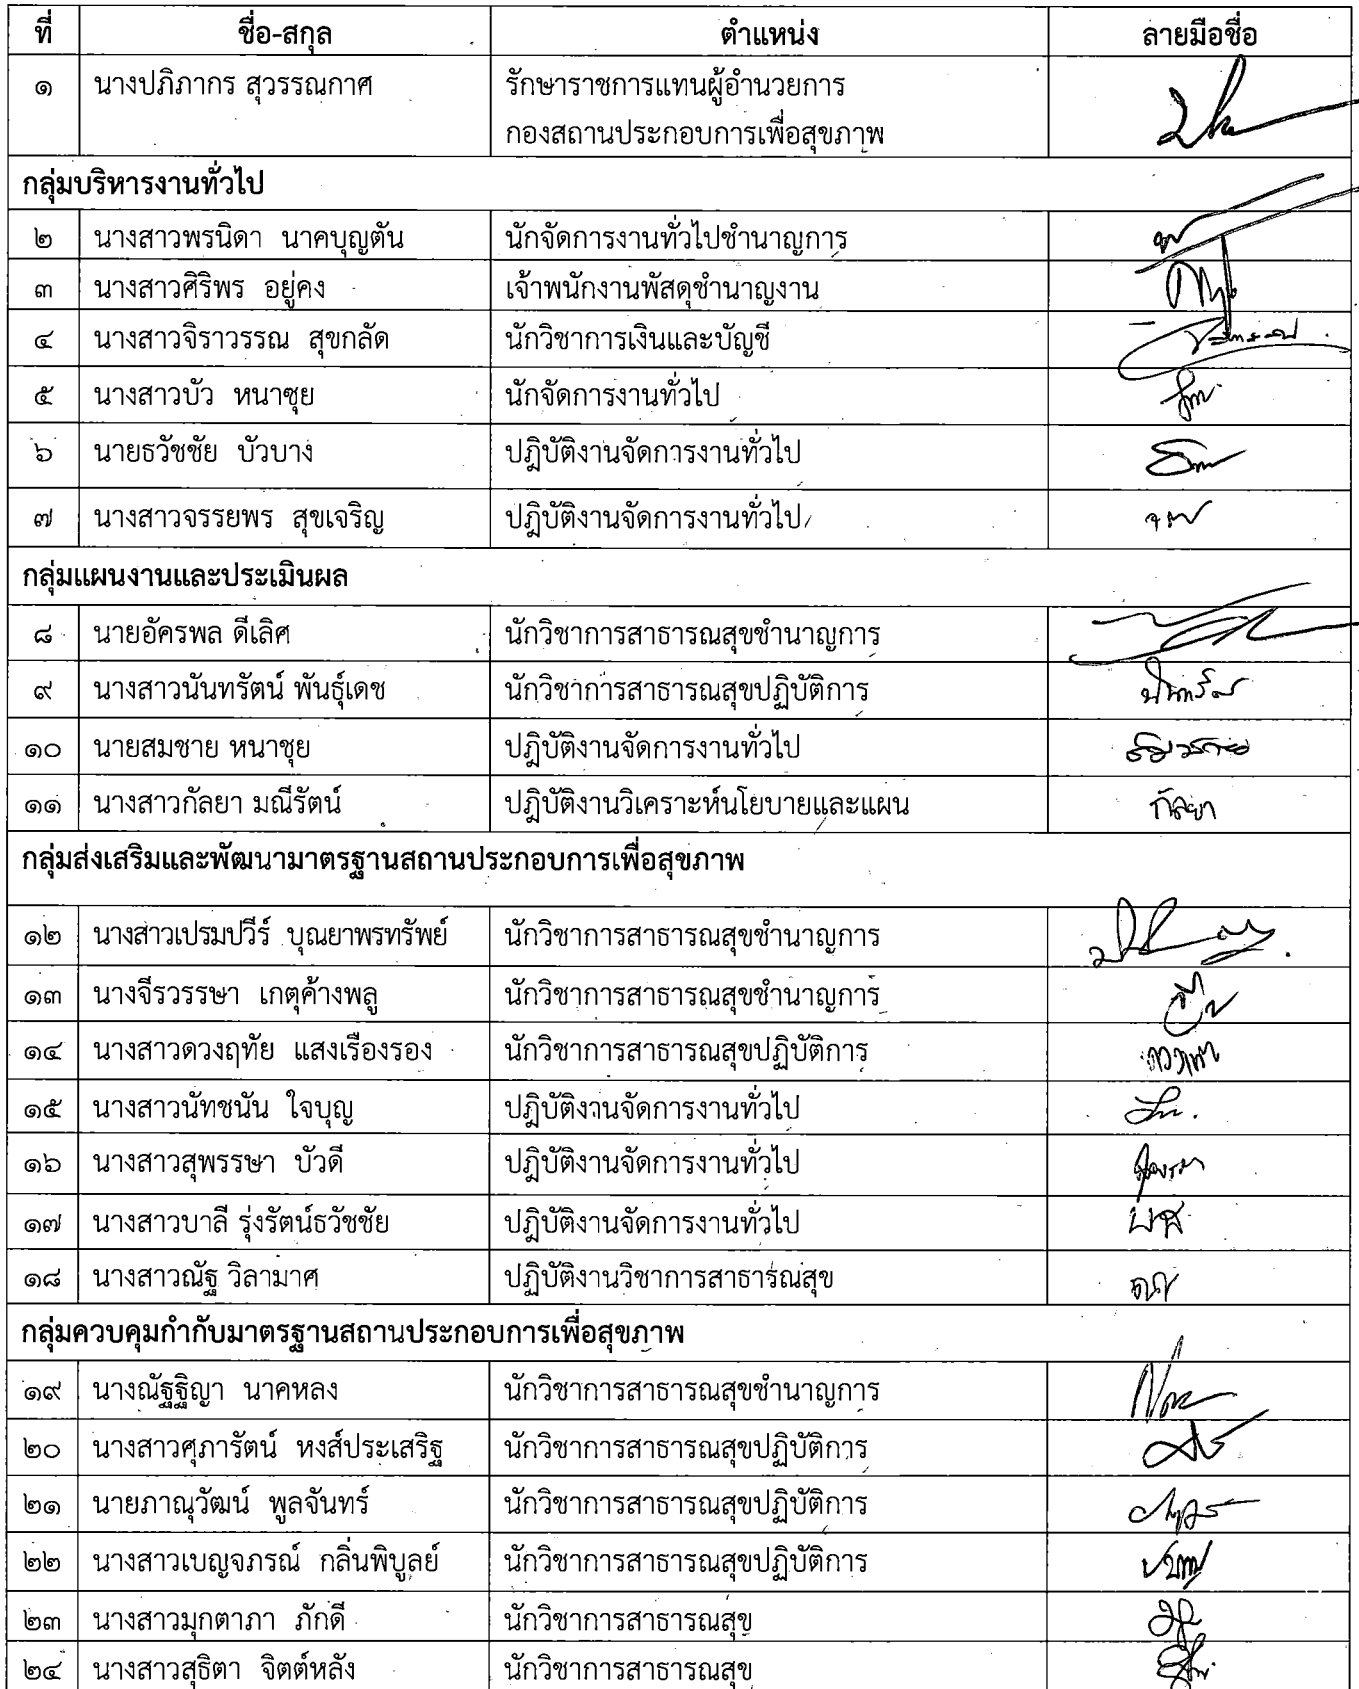 ที่ ชื่อ-สกุล ตำแหน่ง ลายมือชื่อ
๑ นางปภิภากร สุวรรณกาศ รักษาราชการแทนผู้อำนวยการ
กองสถานประกอบการเพื่อสุขภาพ
กลุ่มบริหารงานทั่วไป
๒ นางสาวพรนิดา นาคบุญตัน นักจัดการงานทั่วไปชำนาญการ
๓ นางสาวศิริพร อยู่คง เจ้าพนักงานพัสดุชำนาญงาน
๔ นางสาวจิราวรรณ สุขกลัด นักวิชาการเงินและบัญชี
๕ นางสาวบัว หนาซุย นักจัดการงานทั่วไป
๖ นายธวัชชัย บัวบาง ปฎิบัติงานจัดการงานทั่วไป
๗ นางสาวจรรยพร สุขเจริญ ปฎิบัติงานจัดการงานทั่วไป
กลุ่มแผนงานและประเมินผล
๘ นายอัครพล ดีเลิศ นักวิชาการสาธารณสุขชำนาญการ
๙ นางสาวนันทรัตน์ พันธุ์เดช นักวิชาการสาธารณสุขปฏิบัติการ
๑๐ นายสมชาย หนาชุย ปฎิบัติงานจัดการงานทั่วไป
๑๑ นางสาวกัลยา มณีรัตน์ ปฎิบัติงานวิเคราะห์นโยบายและแผน กัลยา
กลุ่มส่งเสริมและพัฒนามาตรฐานสถานประกอบการเพื่อสุขภาพ
๑๒ นางสาวเปรมปวีร์ บุณยาพรทรัพย์ นักวิชาการสาธารณสุขชำนาญการ
๑๓ นางจีรวรรษา เกตุค้างพลู นักวิชาการสาธารณสุขชำนาญการ
๑๔ นางสาวดวงฤทัย แสงเรืองรอง นักวิชาการสาธารณสุขปฏิบัติการ
๑๕ นางสาวนัทชนัน ใจบุญ ปฎิบัติงานจัดการงานทั่วไป
๑๖ นางสาวสุพรรษา บัวดี ปฎิบัติงานจัดการงานทั่วไป
๑๗ นางสาวบาลี รุ่งรัตน์ธวัชชัย ปฎิบัติงานจัดการงานทั่วไป
๑๘ นางสาวณัฐ วิลามาศ ปฎิบัติงานวิชาการสาธารณสุข
กลุ่มควบคุมกำกับมาตรฐานสถานประกอบการเพื่อสุขภาพ
๑๙ นางณัฐฐิญา นาคหลง นักวิชาการสาธารณสุขชำนาญการ
๒๐ นางสาวศุภารัตน์ หงส์ประเสริฐ นักวิชาการสาธารณสุขปฏิบัติการ
๒๑ นายภาณุวัฒน์ พูลจันทร์ นักวิชาการสาธารณสุขปฏิบัติการ
๒๒ นางสาวเบญจภรณ์ กลิ่นพิบูลย์ นักวิชาการสาธารณสุขปฏิบัติการ
๒๓ นางสาวมุกตาภา ภักดี นักวิชาการสาธารณสุข
๒๔ นางสาวสุธิตา จิตต์หลัง นักวิชาการสาธารณสุข